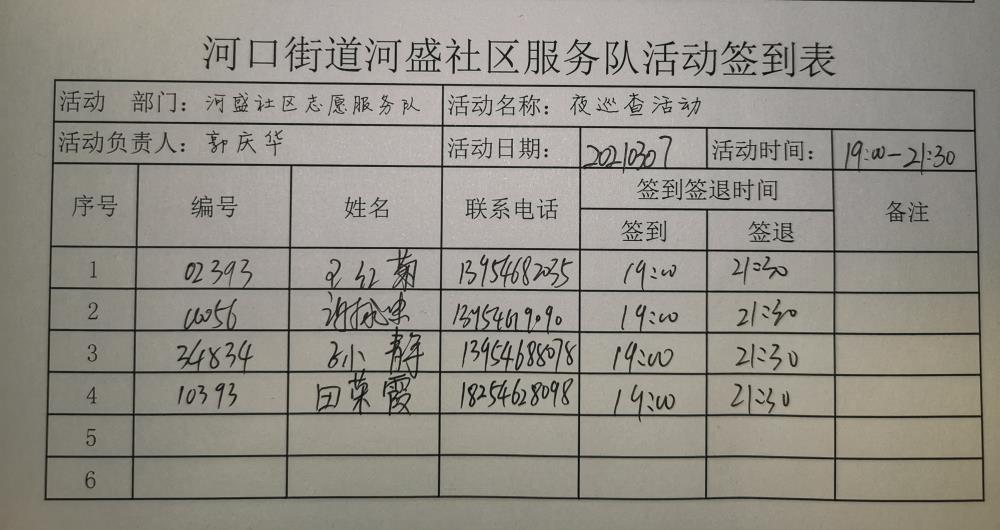 河口街道河盛社区服务队活动签到表
活动 部门: 河盛社区志愿服务队 活动名称: 夜巡查活动
活动负责人: 郭庆华 活动日期: 20210307 活动时间: 19:00-21:30
序号 编号 姓名 联系电话 签到签退时间 备注
签到 签退
1 02393 王红菊 13954682035 19:00 21:30
2 00056 13954619090 19:00 21:30
3 34834 孙静 13954688078 19:00 21:30
4 10393 田荣霞 18254628098 19:00 21:30
5
6